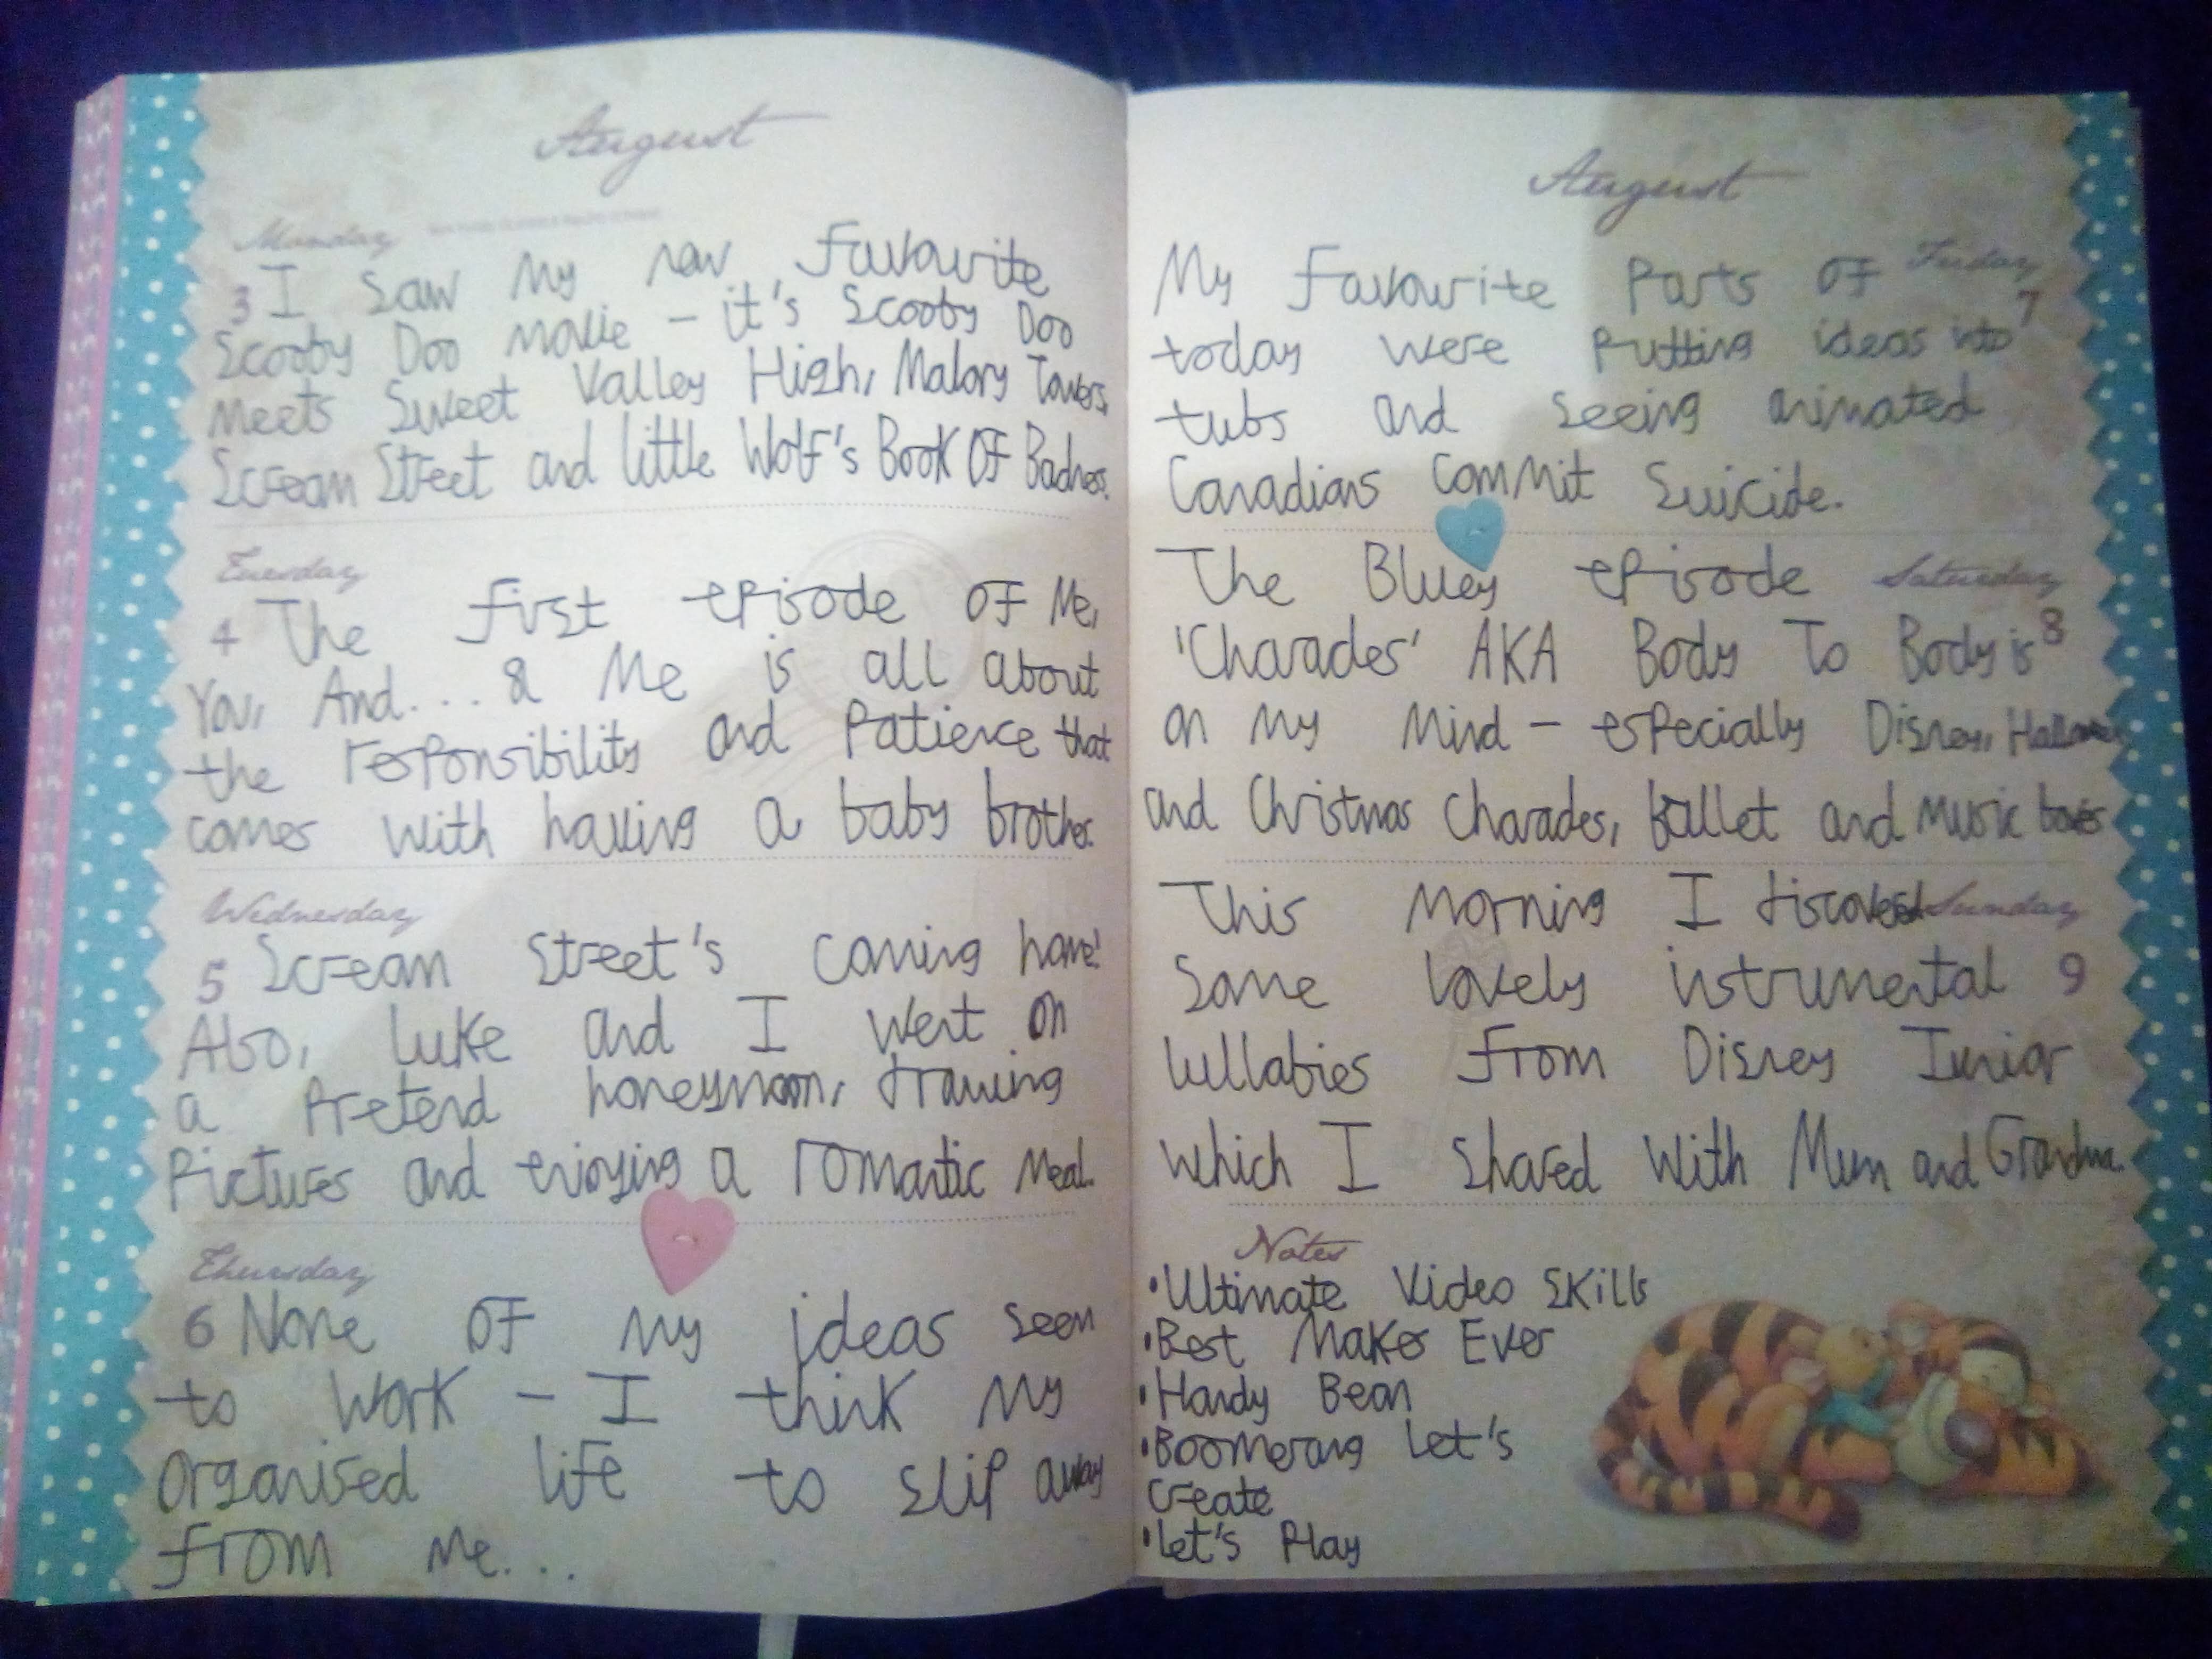 August
Monday
3 I saw my new favourite
Scooby Doo movie - it's Scooby Doo
meets Sweet Valley High, Malory Towers,
Scream Street and Little Wolf's Book Of Badness.
Tuesday
4 The first episode of Me,
You, And.... & Me is all about
the responsibility and patience that
comes with having a baby brother.
Wednesday
5 Scream Street's coming home!
Also, Luke and I went on
a pretend honeymoon, drawing
pictures and enjoying a romantic meal.
Thursday
6 None of my ideas seem
to work - I think my
organised life to slip away
from me...
August
Friday
7
My favourite parts of
today were putting ideas into
tubs and seeing animated
Canadians commit suicide.
Saturday
8
The Bluey episode
'Charades' AKA Body To Body is
on my mind - especially Disney, Halloween
and Christmas charades, ballet and music boxes
Sunday
9
This morning I discovered
some lovely instrumental
lullabies from Disney Junior
which I shared with Mum and Grandma.
Notes
•Ultimate Video Skills
•Best Maker Ever
•Handy Bean
•Boomerang Let's
Create
•Let's Play